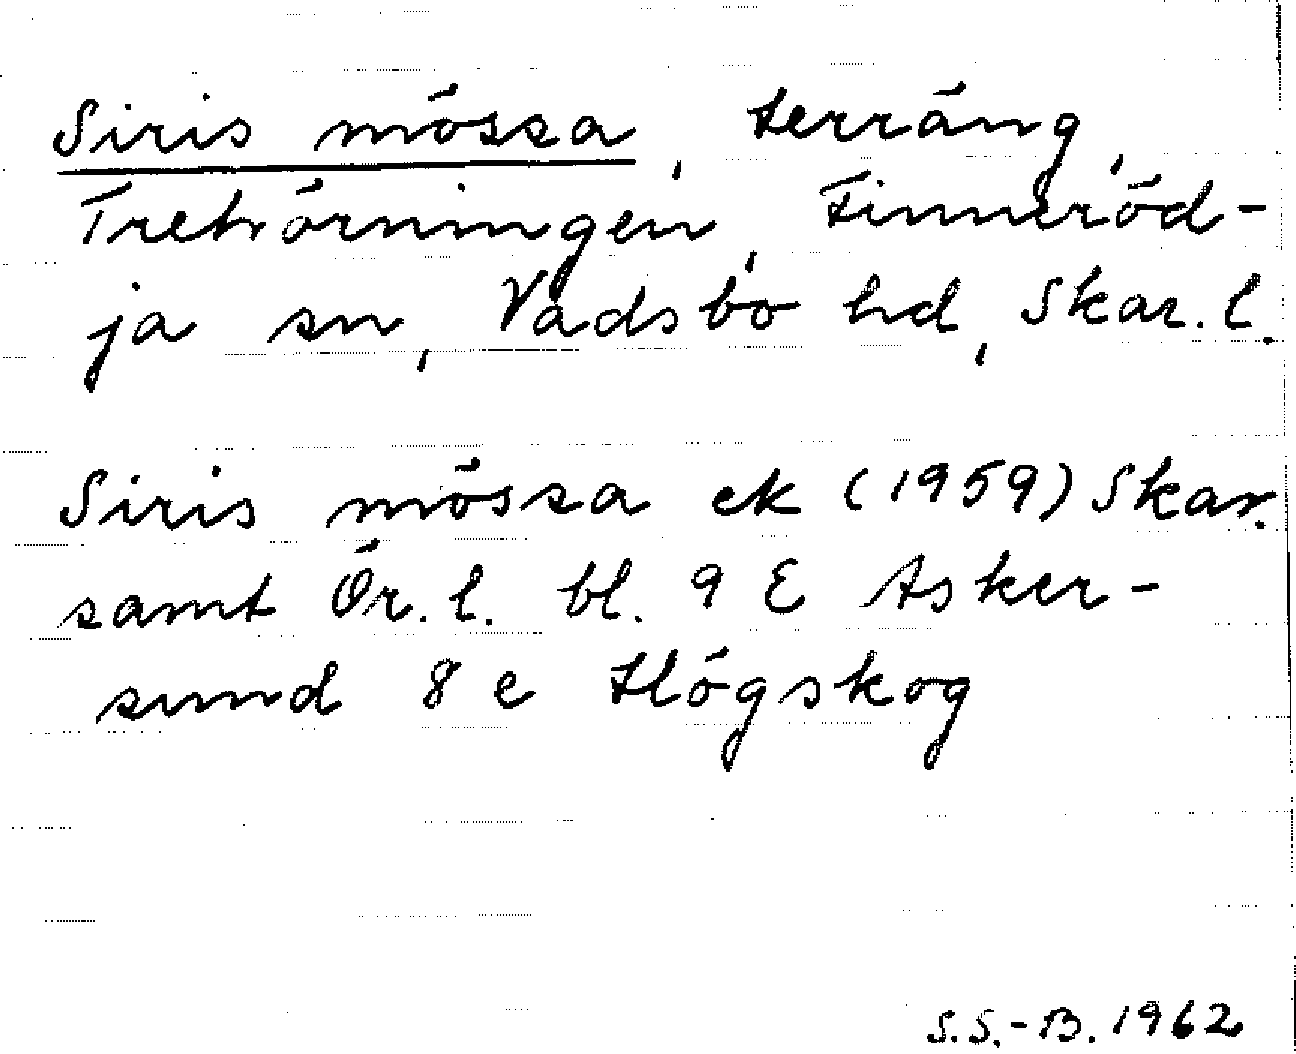 Siris mössa, terräng,
Trehörningen, Finneröd-
ja sn, Vadsbo hd, Skar. l.
Siris mössa ek (1959) Skar.
samt Ör. l. bl. 9 E Asker-
sund 8 e Högskog
S.S.-B. 1962